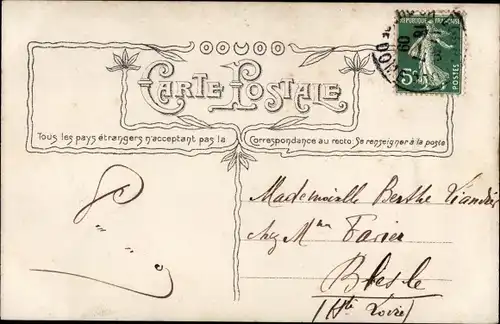 RÉPUBLIQUE FRANÇAISE
5c
POSTES
CARTE POSTALE
Tous les pays étrangers n'acceptant pas la Correspondance au recto. Se renseigner à la poste
Mademoiselle Berthe
chez Mme
Blesle
(Hte Loire)